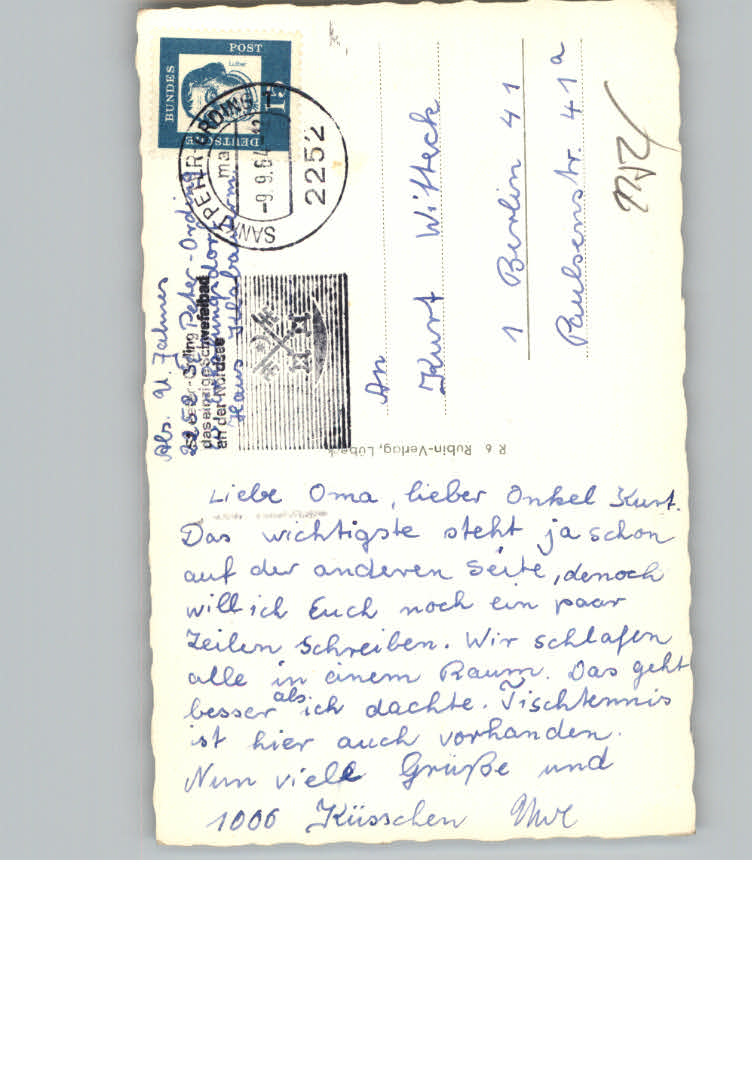 Liebe Oma, lieber Onkel Kurt.
Das wichtigste steht ja schon
auf der anderen Seite, denoch
will ich Euch noch ein paar
Zeilen schreiben. Wir schlafen
alle in einem Raum. Das geht
besser als ich dachte. Tischtennis
ist hier auch vorhanden.
Nun viele Grüße und
1000 Küsschen Uwe
An
Kurt Witteck
1 Berlin 41
Paulsenstr. 41a
Abs. U. Jahnes
2252 St. Peter-Ording
Haus
DEUTSCHE BUNDESPOST
Luther
15
SANKT PETER-ORDING 1
-9.9.64
2252
das einzige Schwefelbad
an der Nordsee
R 6 Rubin-Verlag, Lübeck